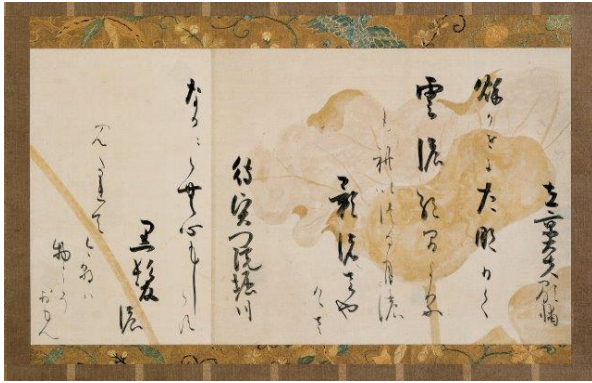 左京大夫顕輔
秋かせにたなひく
雲濃絶間より
もれいつる月濃
影濃さや
けさ
待賢門院堀川
なかゝらむ心もしらす
黒髪濃
みたれて
今朝は
物をこそ
おもへ